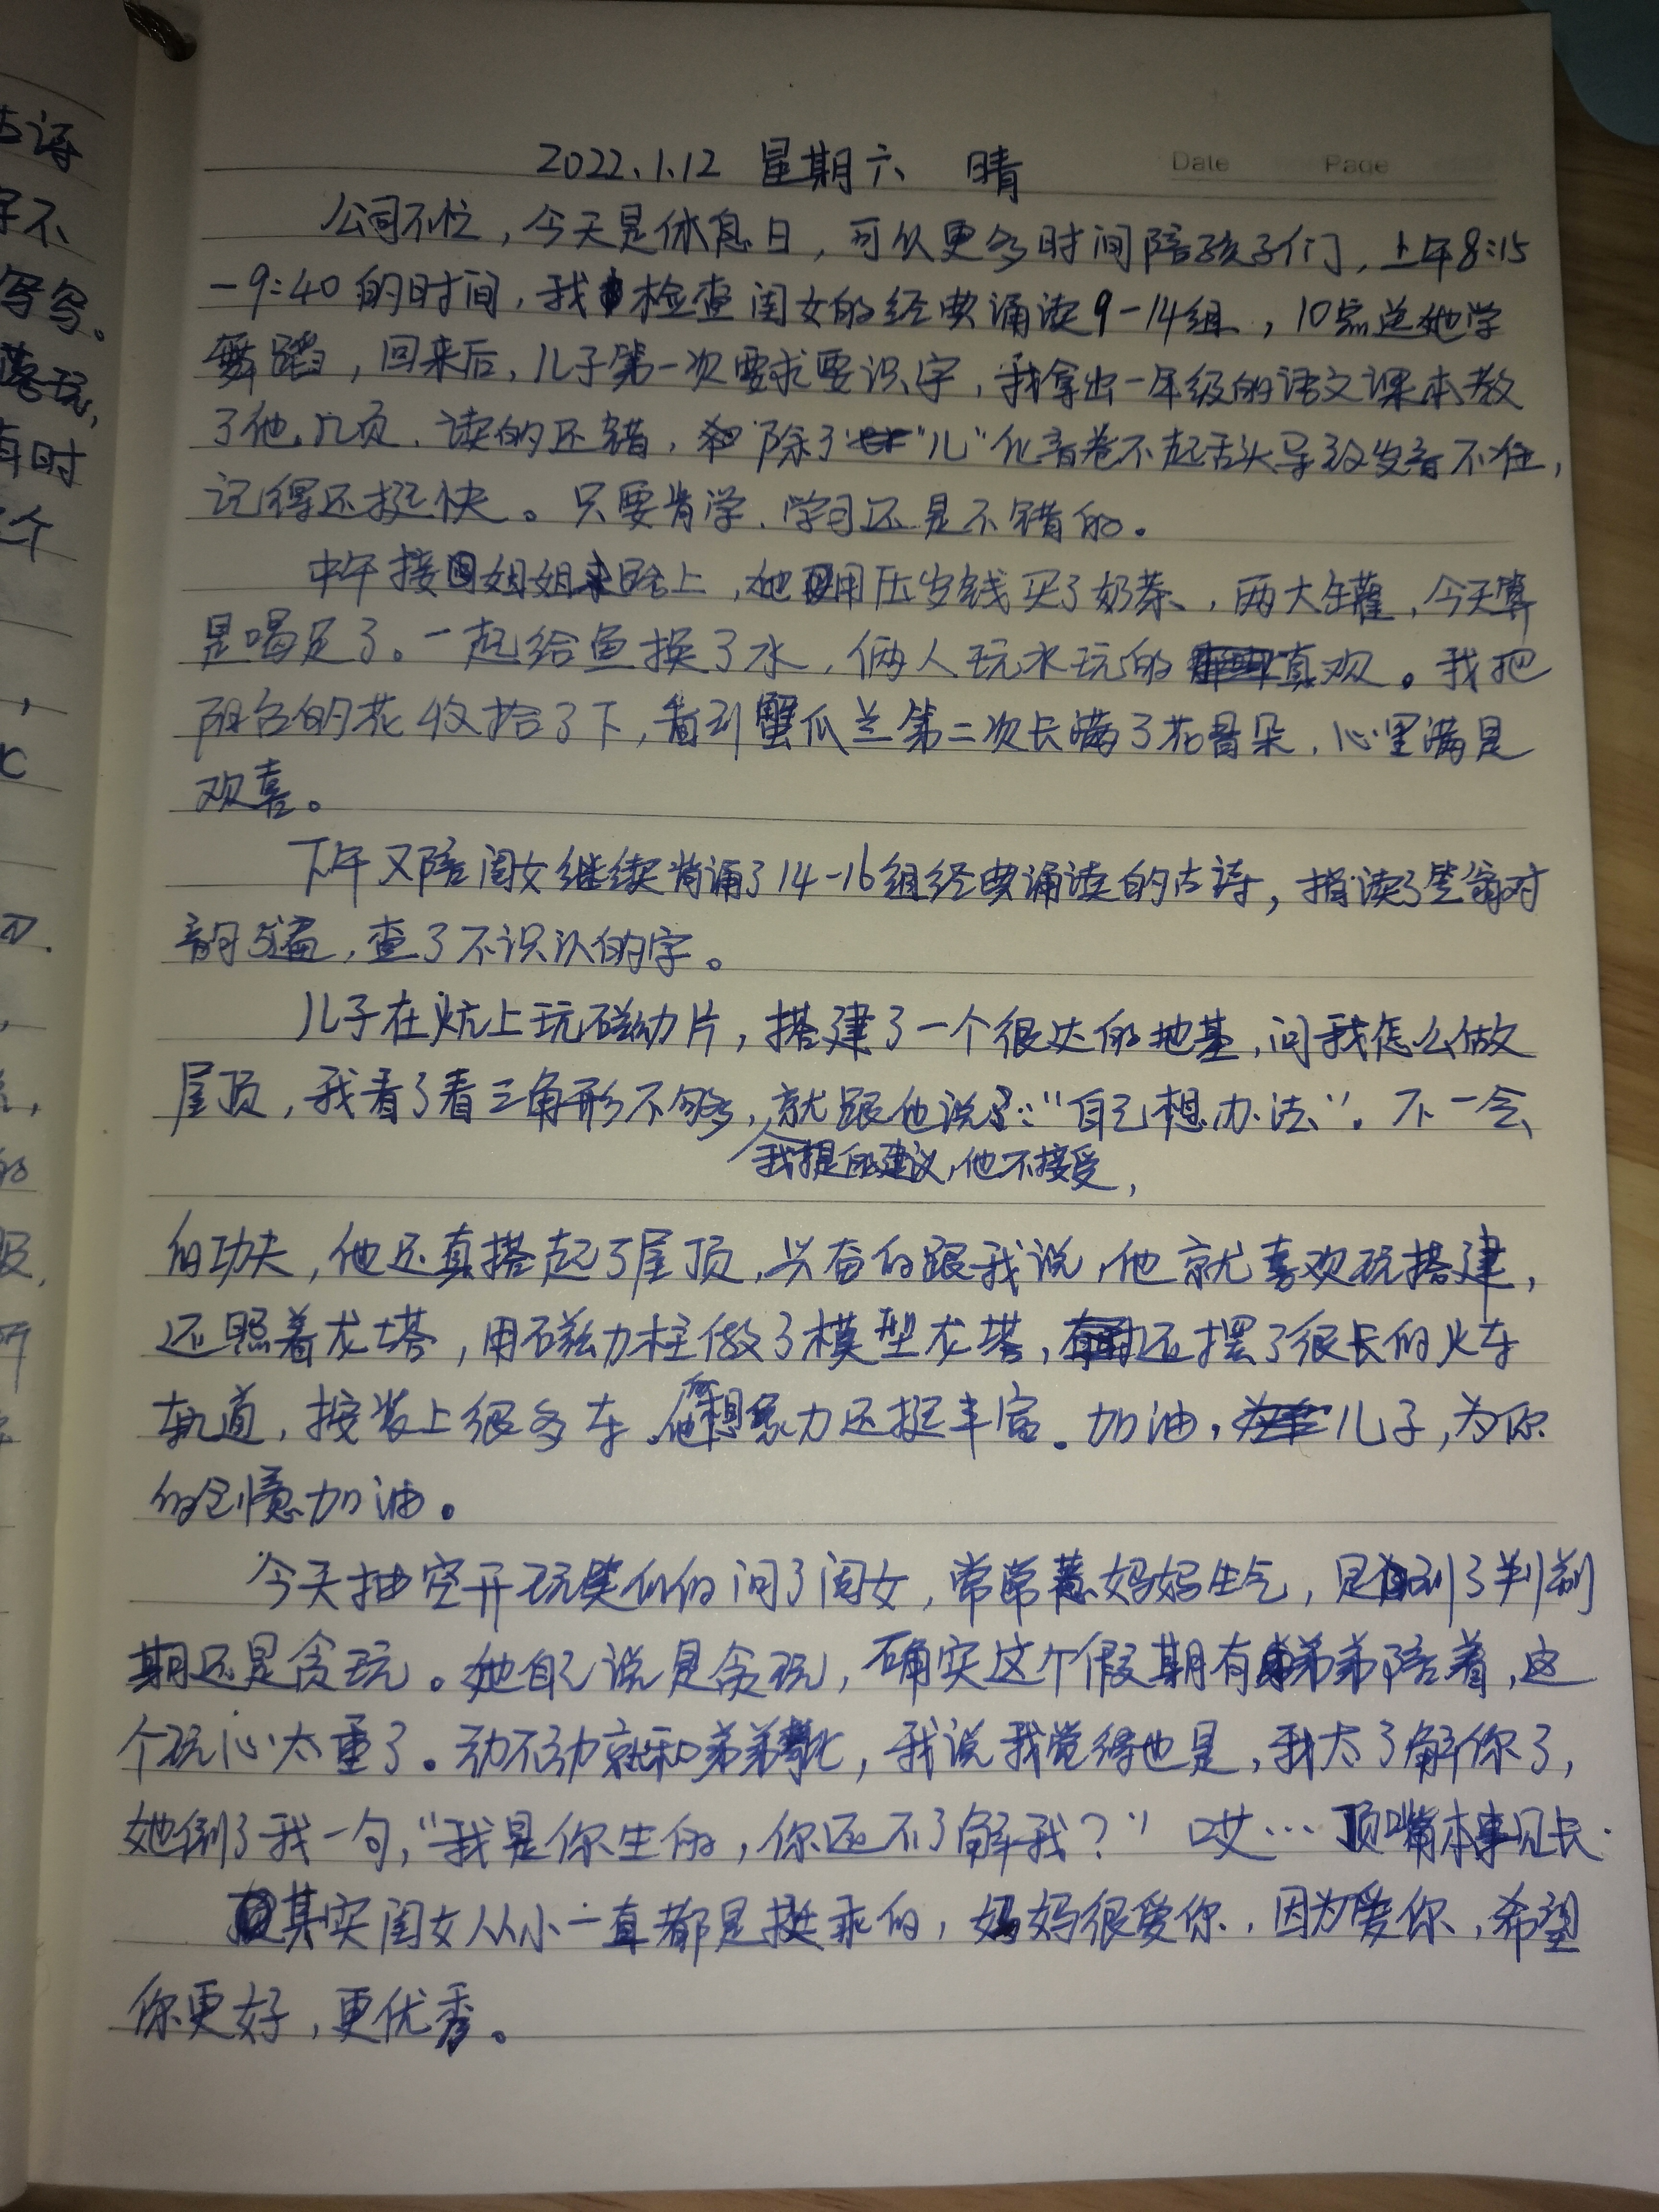 2022.1.12 星期六 晴
Date Page
公司不忙，今天是休息日，可以更多时间陪孩子们，上午8:15
-9:40的时间，我检查闺女的经典诵读9-14组，10点送她学
舞蹈，回来后，儿子第一次要求要识字，我拿出一年级的语文课本教
了他几页，读的还错，除了"儿"化音卷不起舌头导致发音不准，
记得还挺快。只要肯学，学习还是不错的。
中午接姐姐路上，她用压岁钱买了奶茶，两大罐，今天算
是喝足了。一起给鱼换了水，俩人玩水玩的真欢。我把
阳台的花收拾了下，看到蟹爪兰第二次长满了花骨朵，心里满是
欢喜。
下午又陪闺女继续背诵了14-16组经典诵读的古诗，指读了笠翁对
韵5遍，查了不识认的字。
儿子在炕上玩磁力片，搭建了一个很大的地基，问我怎么做
屋顶，我看了看三角形不够，就跟他说："自己想办法"。不一会
我提的建议，他不接受，
的功夫，他还真搭起了屋顶，兴奋的跟我说，他就喜欢玩搭建，
还照着龙塔，用磁力柱做了模型龙塔，还摆了很长的火车
轨道，按装上很多车，他的想象力还挺丰富。加油，儿子，为你
的创意加油。
今天抽空开玩笑似的问了闺女，常常惹妈妈生气，是到了判逆
期还是贪玩。她自己说是贪玩，确实这个假期有弟弟陪着，这
个玩心太重了。动不动就和弟弟，我说我觉得也是，我太了解你了，
她倒了我一句，"我是你生的，你还不了解我？" 哎… 顶嘴本事见长．
其实闺女从小一直都是挺乖的，妈妈很爱你，因为爱你，希望
你更好，更优秀。